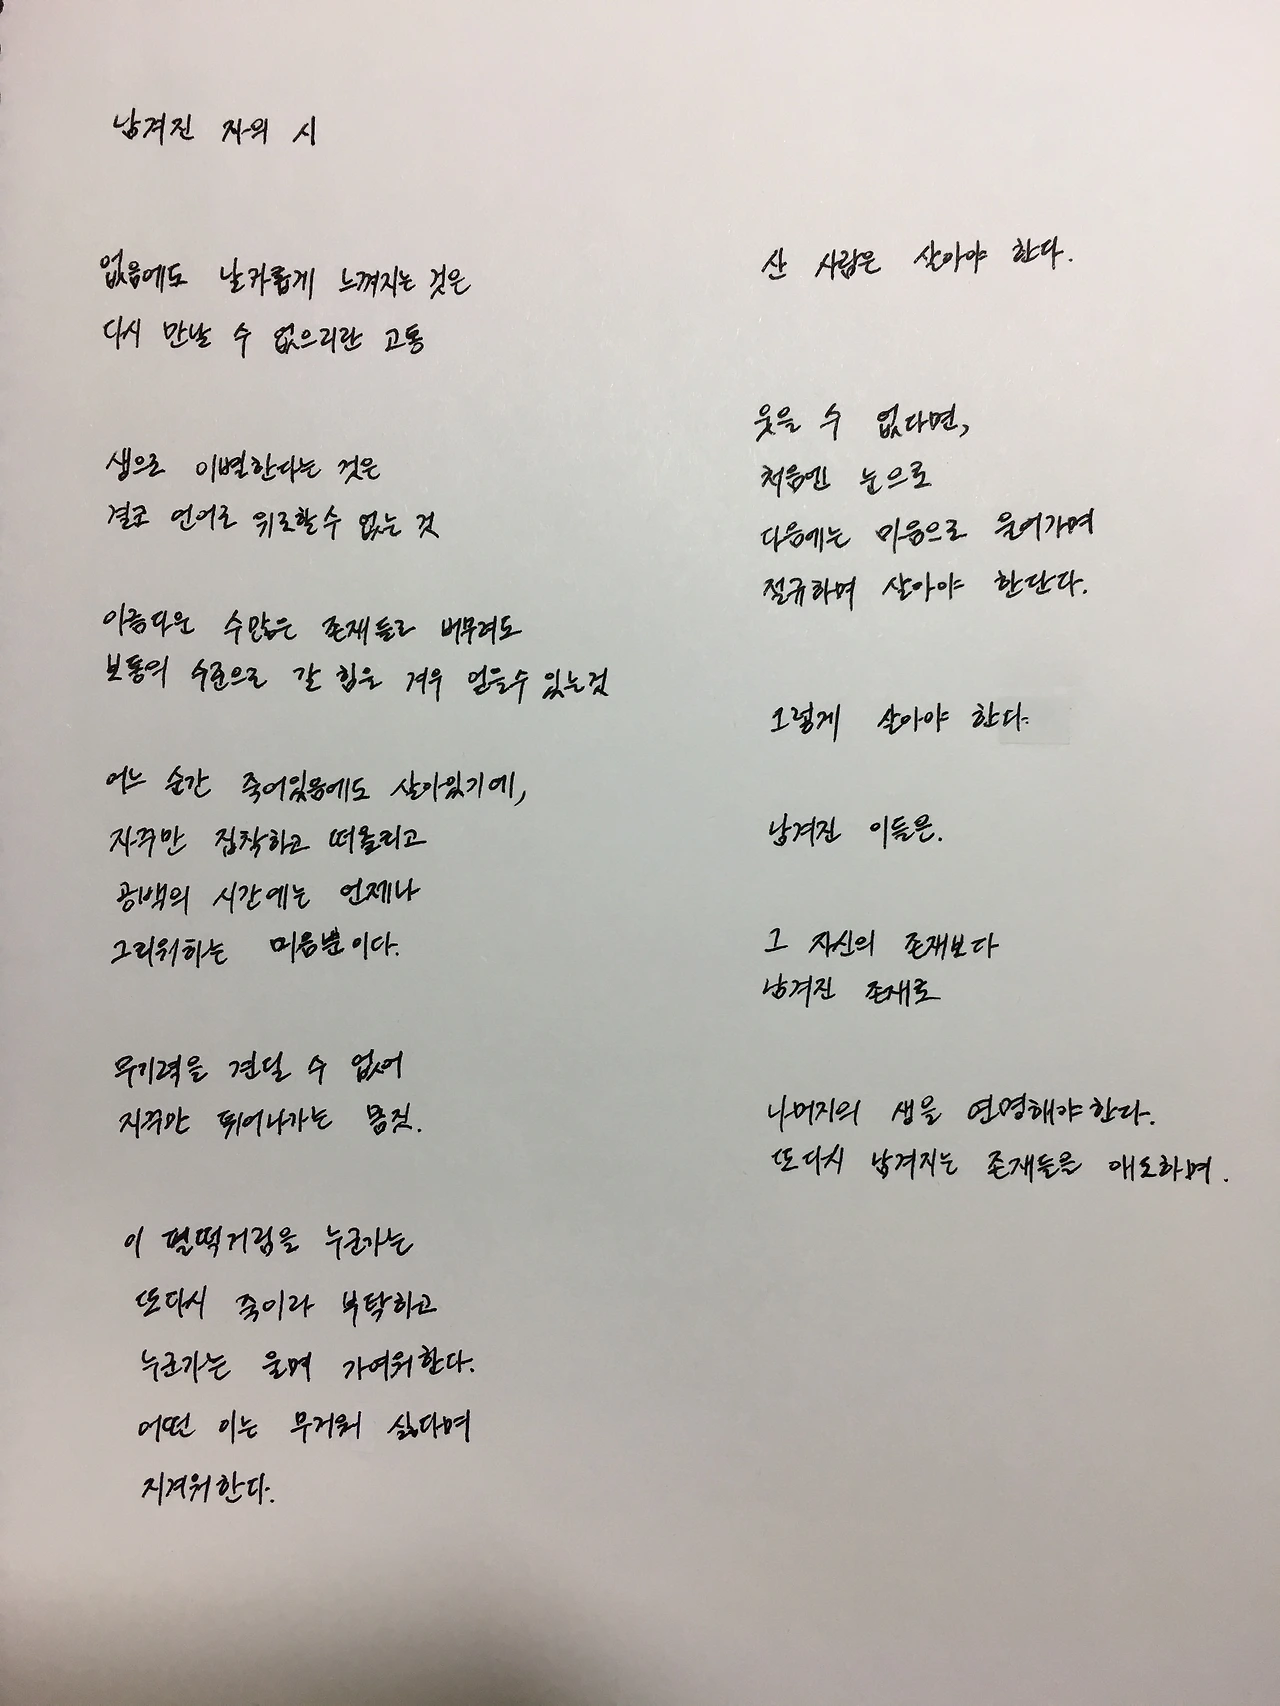 남겨진 자의 시
없음에도 날카롭게 느껴지는 것은
다시 만날 수 없으리란 고통
생으로 이별한다는 것은
결코 언어로 위로할 수 없는 것
아름다운 수많은 존재들과 버무려도
보통의 수준으로 갈 힘을 겨우 얻을 수 있는 것
어느 순간 죽어있음에도 살아있기에,
자꾸만 집착하고 떠올리고
공백의 시간에는 언제나
그리워하는 마음뿐이다.
무기력을 견딜 수 없어
자꾸만 뛰어나가는 몸짓.
이 펄떡거림을 누군가는
또다시 죽이라 부탁하고
누군가는 울며 가여워한다.
어떤 이는 무거워 싫다며
지겨워한다.
산 사람은 살아야 한다.
웃을 수 없다면,
처음엔 눈으로
다음에는 마음으로 울어가며
절규하며 살아야 한단다.
그렇게 살아야 한다
남겨진 이들은.
그 자신의 존재보다
남겨진 존재로
나머지의 생을 연명해야 한다.
또다시 남겨지는 존재들을 애도하며.